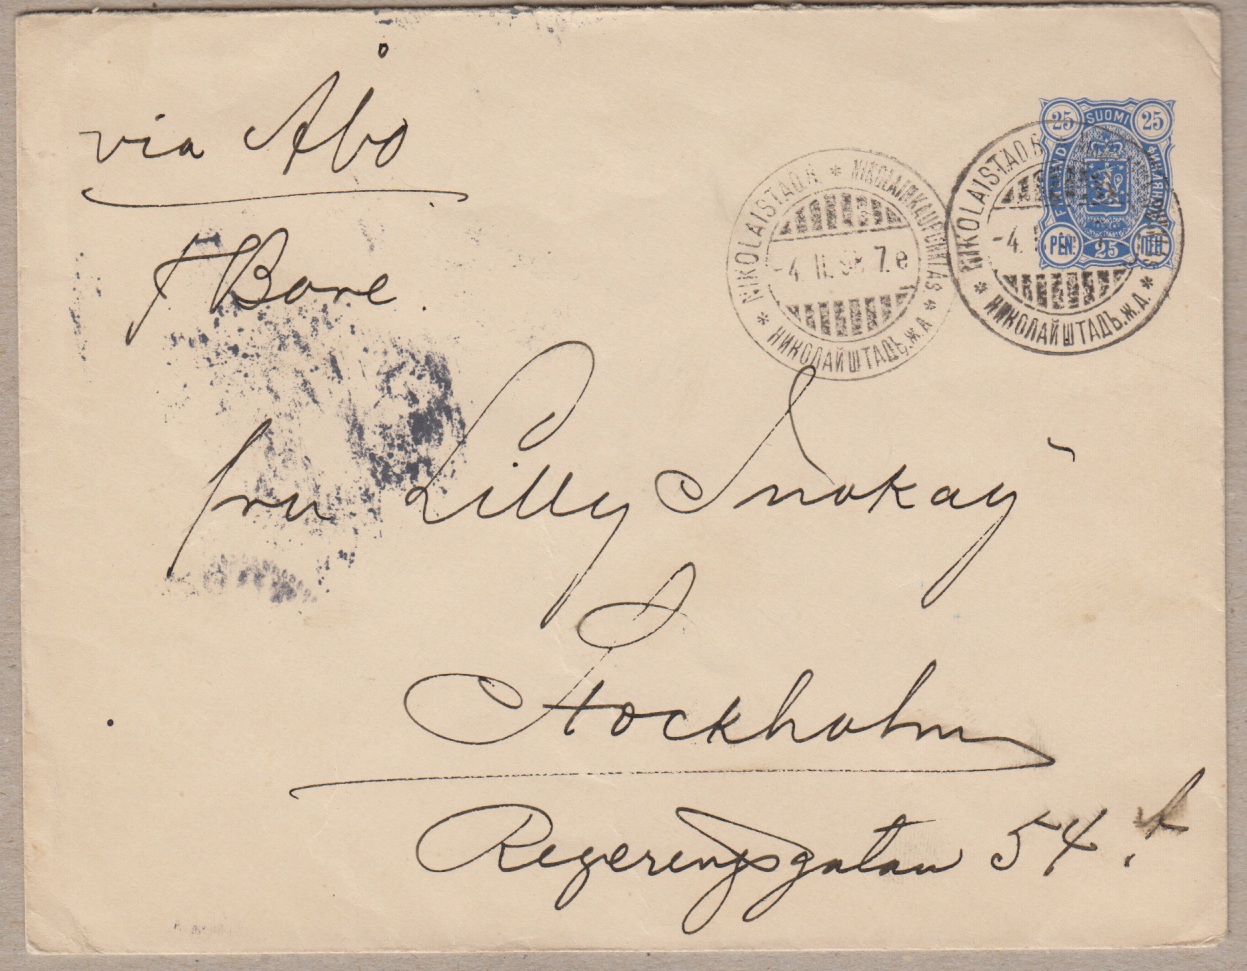 via Åbo
f Bore.
fru Lilly
Stockholm
Regeringsgatan 54.
25 SUOMI 25
PEN. 25 ПЕН.
NIKOLAISTAD.K. * NIKOLAINKAUPUNKI AS *
-4. II. 98. 7.e
* НИКОЛАЙШТАДЪ.Ж.Д.
NIKOLAISTAD.K
-4. I
* НИКОЛАЙШТАДЪ.Ж.Д. *